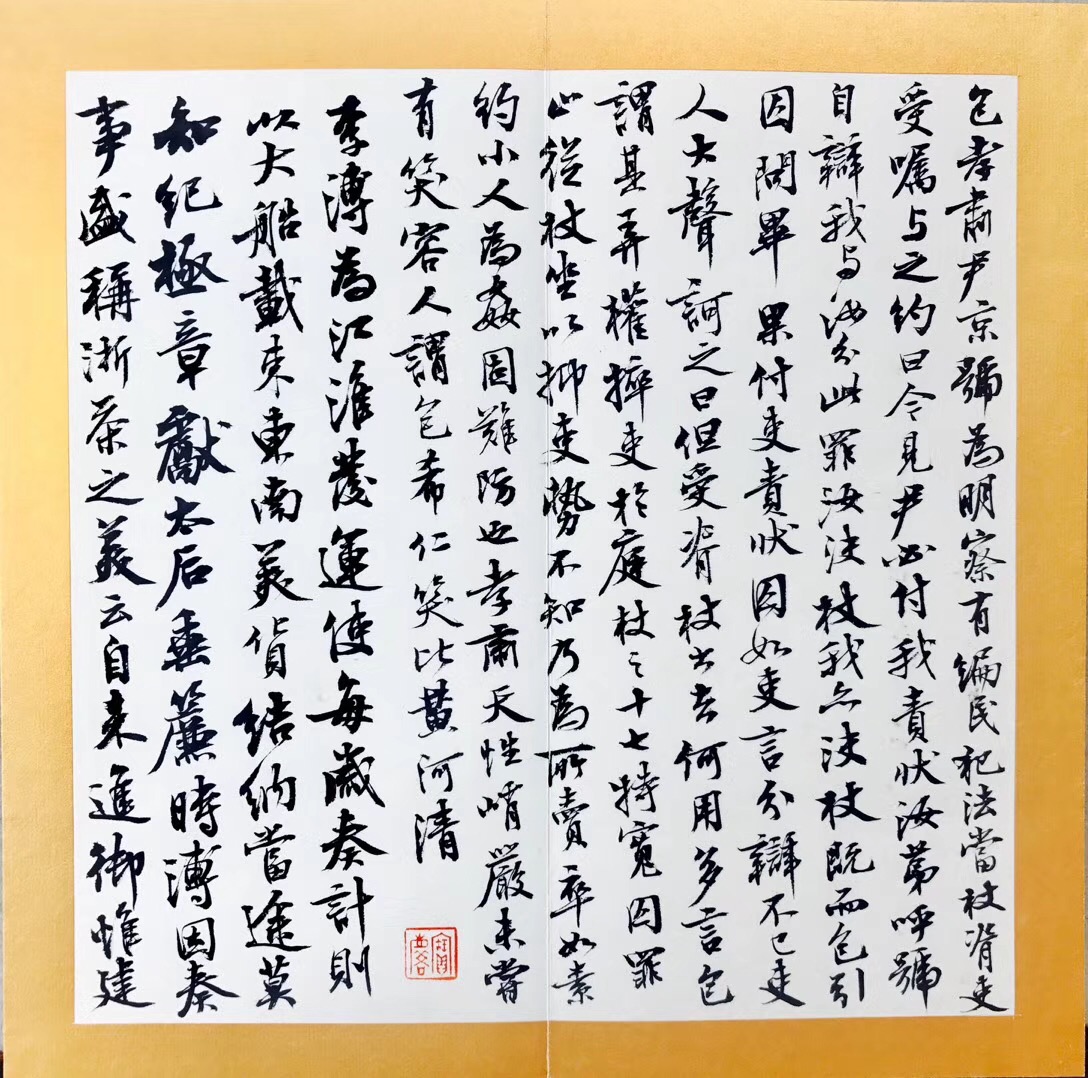 包孝肅尹京號為明察有編民犯法當杖脊吏
受囑与之約曰今見尹必付我責狀汝第呼號
自辯我与汝分此罪汝決杖我亦決杖既而包引
囚問畢果付吏責狀囚如吏言分辯不已吏
人大聲訶之曰但受脊杖出去何用多言包
謂其弄權捽吏於庭杖之十七特寬囚罪
止從杖坐以抑吏勢不知乃為所賣卒如素
約小人為姦固難防也孝肅天性峭嚴未嘗
有笑容人謂包希仁笑比黃河清
李溥為江淮發運使每歲奏計則
以大船載東東南美貨結納當途莫
知紀極章獻太后垂簾時溥因奏
事盛稱浙茶之美云自來進御惟建